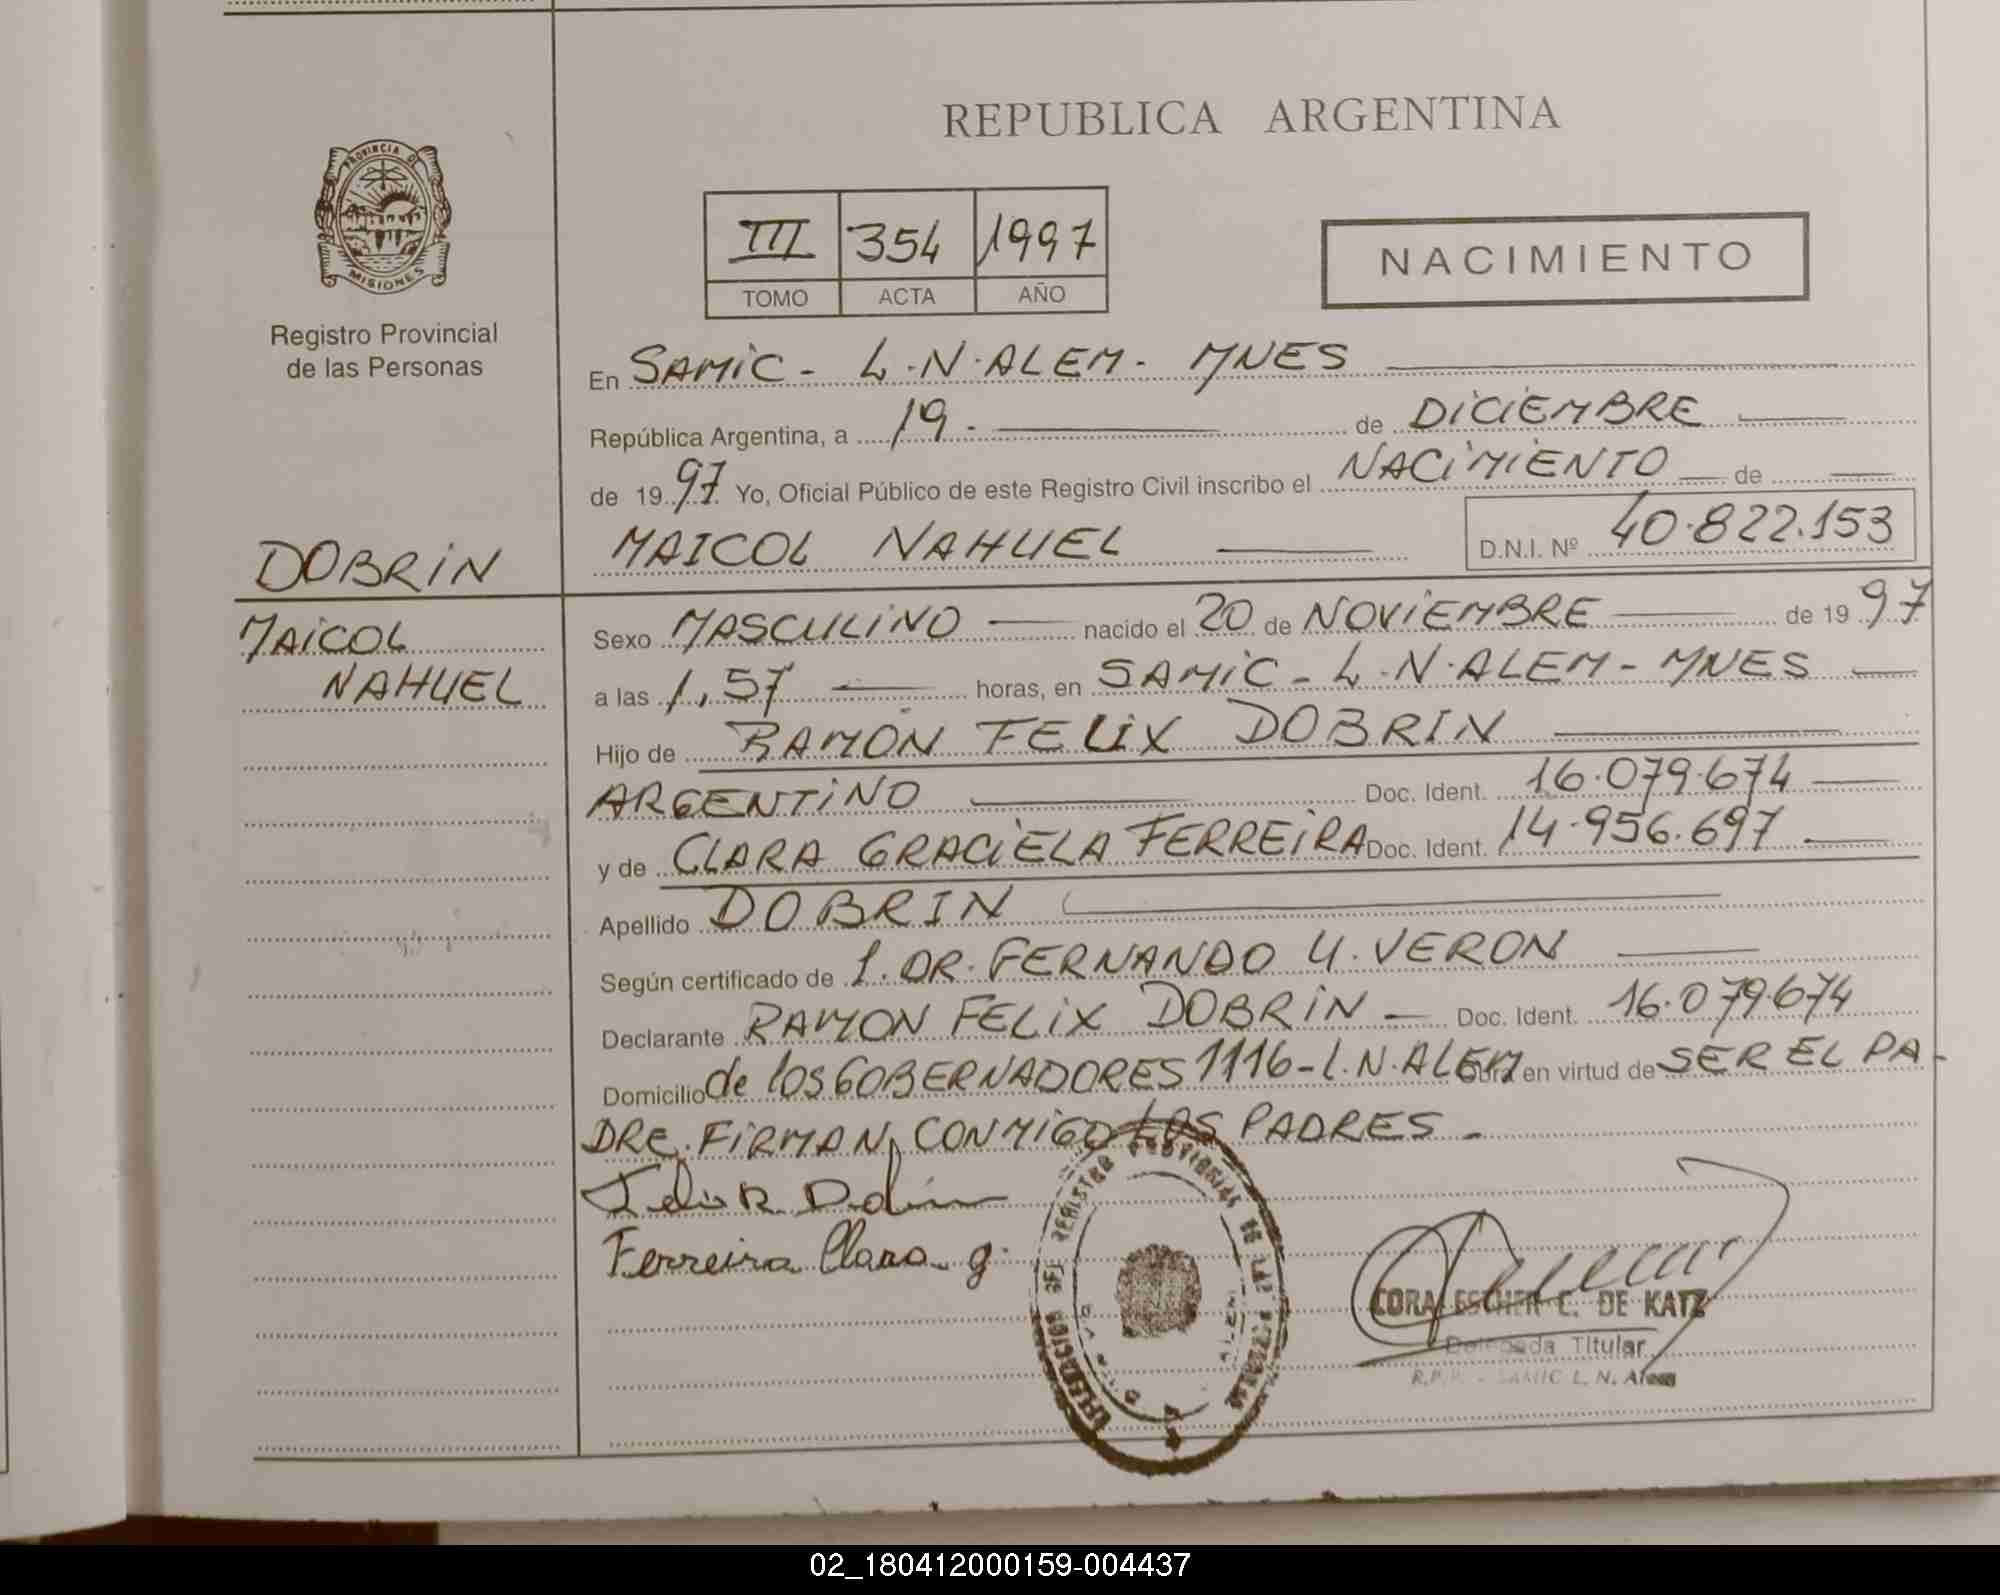 REPUBLICA ARGENTINA
PROVINCIA DE
MISIONES
Registro Provincial
de las Personas
III 354 1997
TOMO ACTA AÑO
NACIMIENTO
En SAMIC - L.N.ALEM - MNES
República Argentina, a 19. de DICIEMBRE
de 1997 Yo, Oficial Público de este Registro Civil inscribo el NACIMIENTO de
MAICOL NAHUEL D.N.I. Nº 40.822.153
DOBRIN
MAICOL
NAHUEL
Sexo MASCULINO nacido el 20 de NOVIEMBRE de 1997
a las 1,57 horas, en SAMIC - L.N.ALEM - MNES
Hijo de RAMON FELIX DOBRIN
ARGENTINO Doc. Ident. 16.079.674
y de CLARA GRACIELA FERREIRA Doc. Ident. 14.956.697
Apellido DOBRIN
Según certificado de 1. DR. FERNANDO U. VERON
Declarante RAMON FELIX DOBRIN - Doc. Ident. 16.079.674
Domicilio de los GOBERNADORES 1116 - L.N.ALEM Obra en virtud de SER EL PA-
DRE. FIRMAN CONMIGO LOS PADRES -
Felix R Dobrin
Ferreira Clara g.
REGISTRO PROVINCIAL DE LAS PERSONAS
CORA ESTHER C. DE KATZ
Delegada Titular
R.P.P. - SAMIC L. N. Alem
02_180412000159-004437